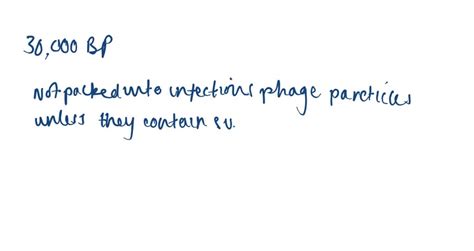 30,000 BP
Not packed into infectious phage particles
unless they contain